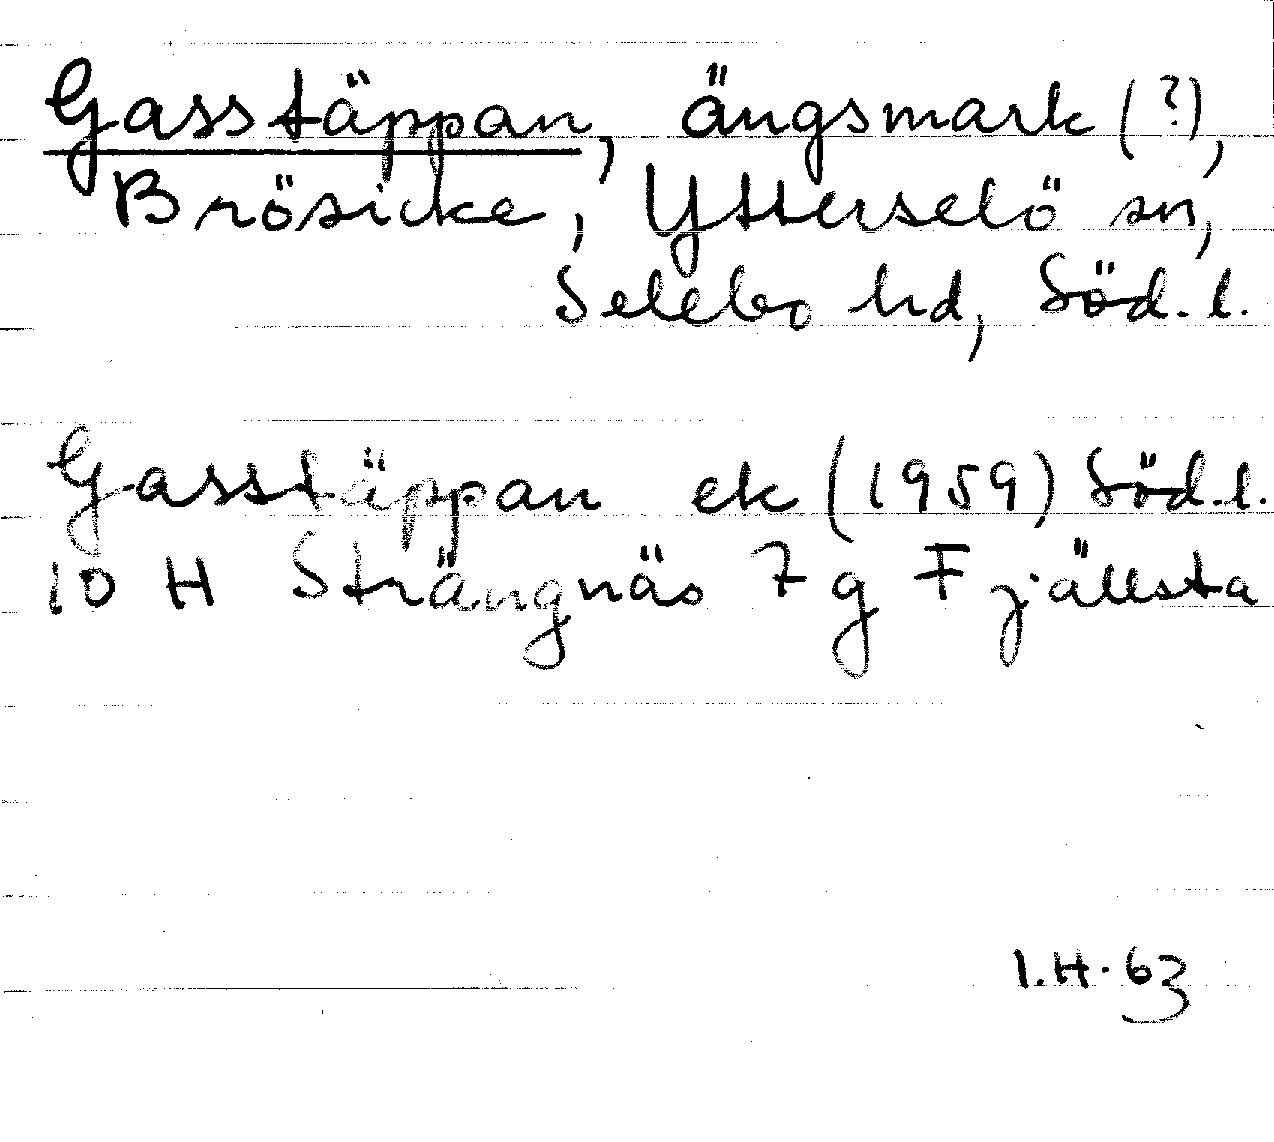 Gasstäppan, ängsmark (?),
Brösicke, Ytterselö sn,
Selebo hd, Söd. l.
Gasstäppan ek (1959) Söd. l.
10 H Strängnäs 7 g Fjällsta
I.H. 63